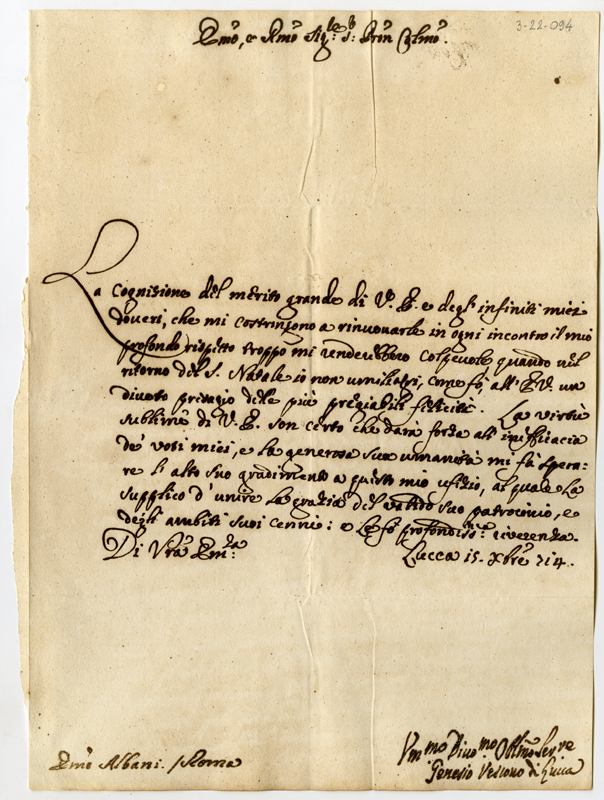 3-22-094
Emo, e Rmo Sig.re S: Prin Colmo.
La Cognizione del merito grande di V. E. e degl' infiniti miei
doveri, che mi costringono a rinuovarle in ogni incontro il mio
profondo rispetto troppo mi renderebbero Colpevole quando nel
ritorno del S. Natale io non umiliassi, come fò, all' E.V. un
divoto presagio delle più pregiabili felicità. La virtù
sublime di V. E. son certo che darà forza all' inefficacia
de' voti miei, e la generosa sua umanità mi fà spera-
re l' alto suo gradimento a questo mio ufizio, al quale La
supplico d' unire la grazia del valido suo patrocinio, e
degli ambiti suoi cenni: e Le fò profondiss.ma riverenza.
Di Vra Em.za Lucca 15. Xbre 714.
Emo Albani. / Roma
Vm.mo Divo.mo Obbmo Serv.re
Genesio Vescovo di Lucca